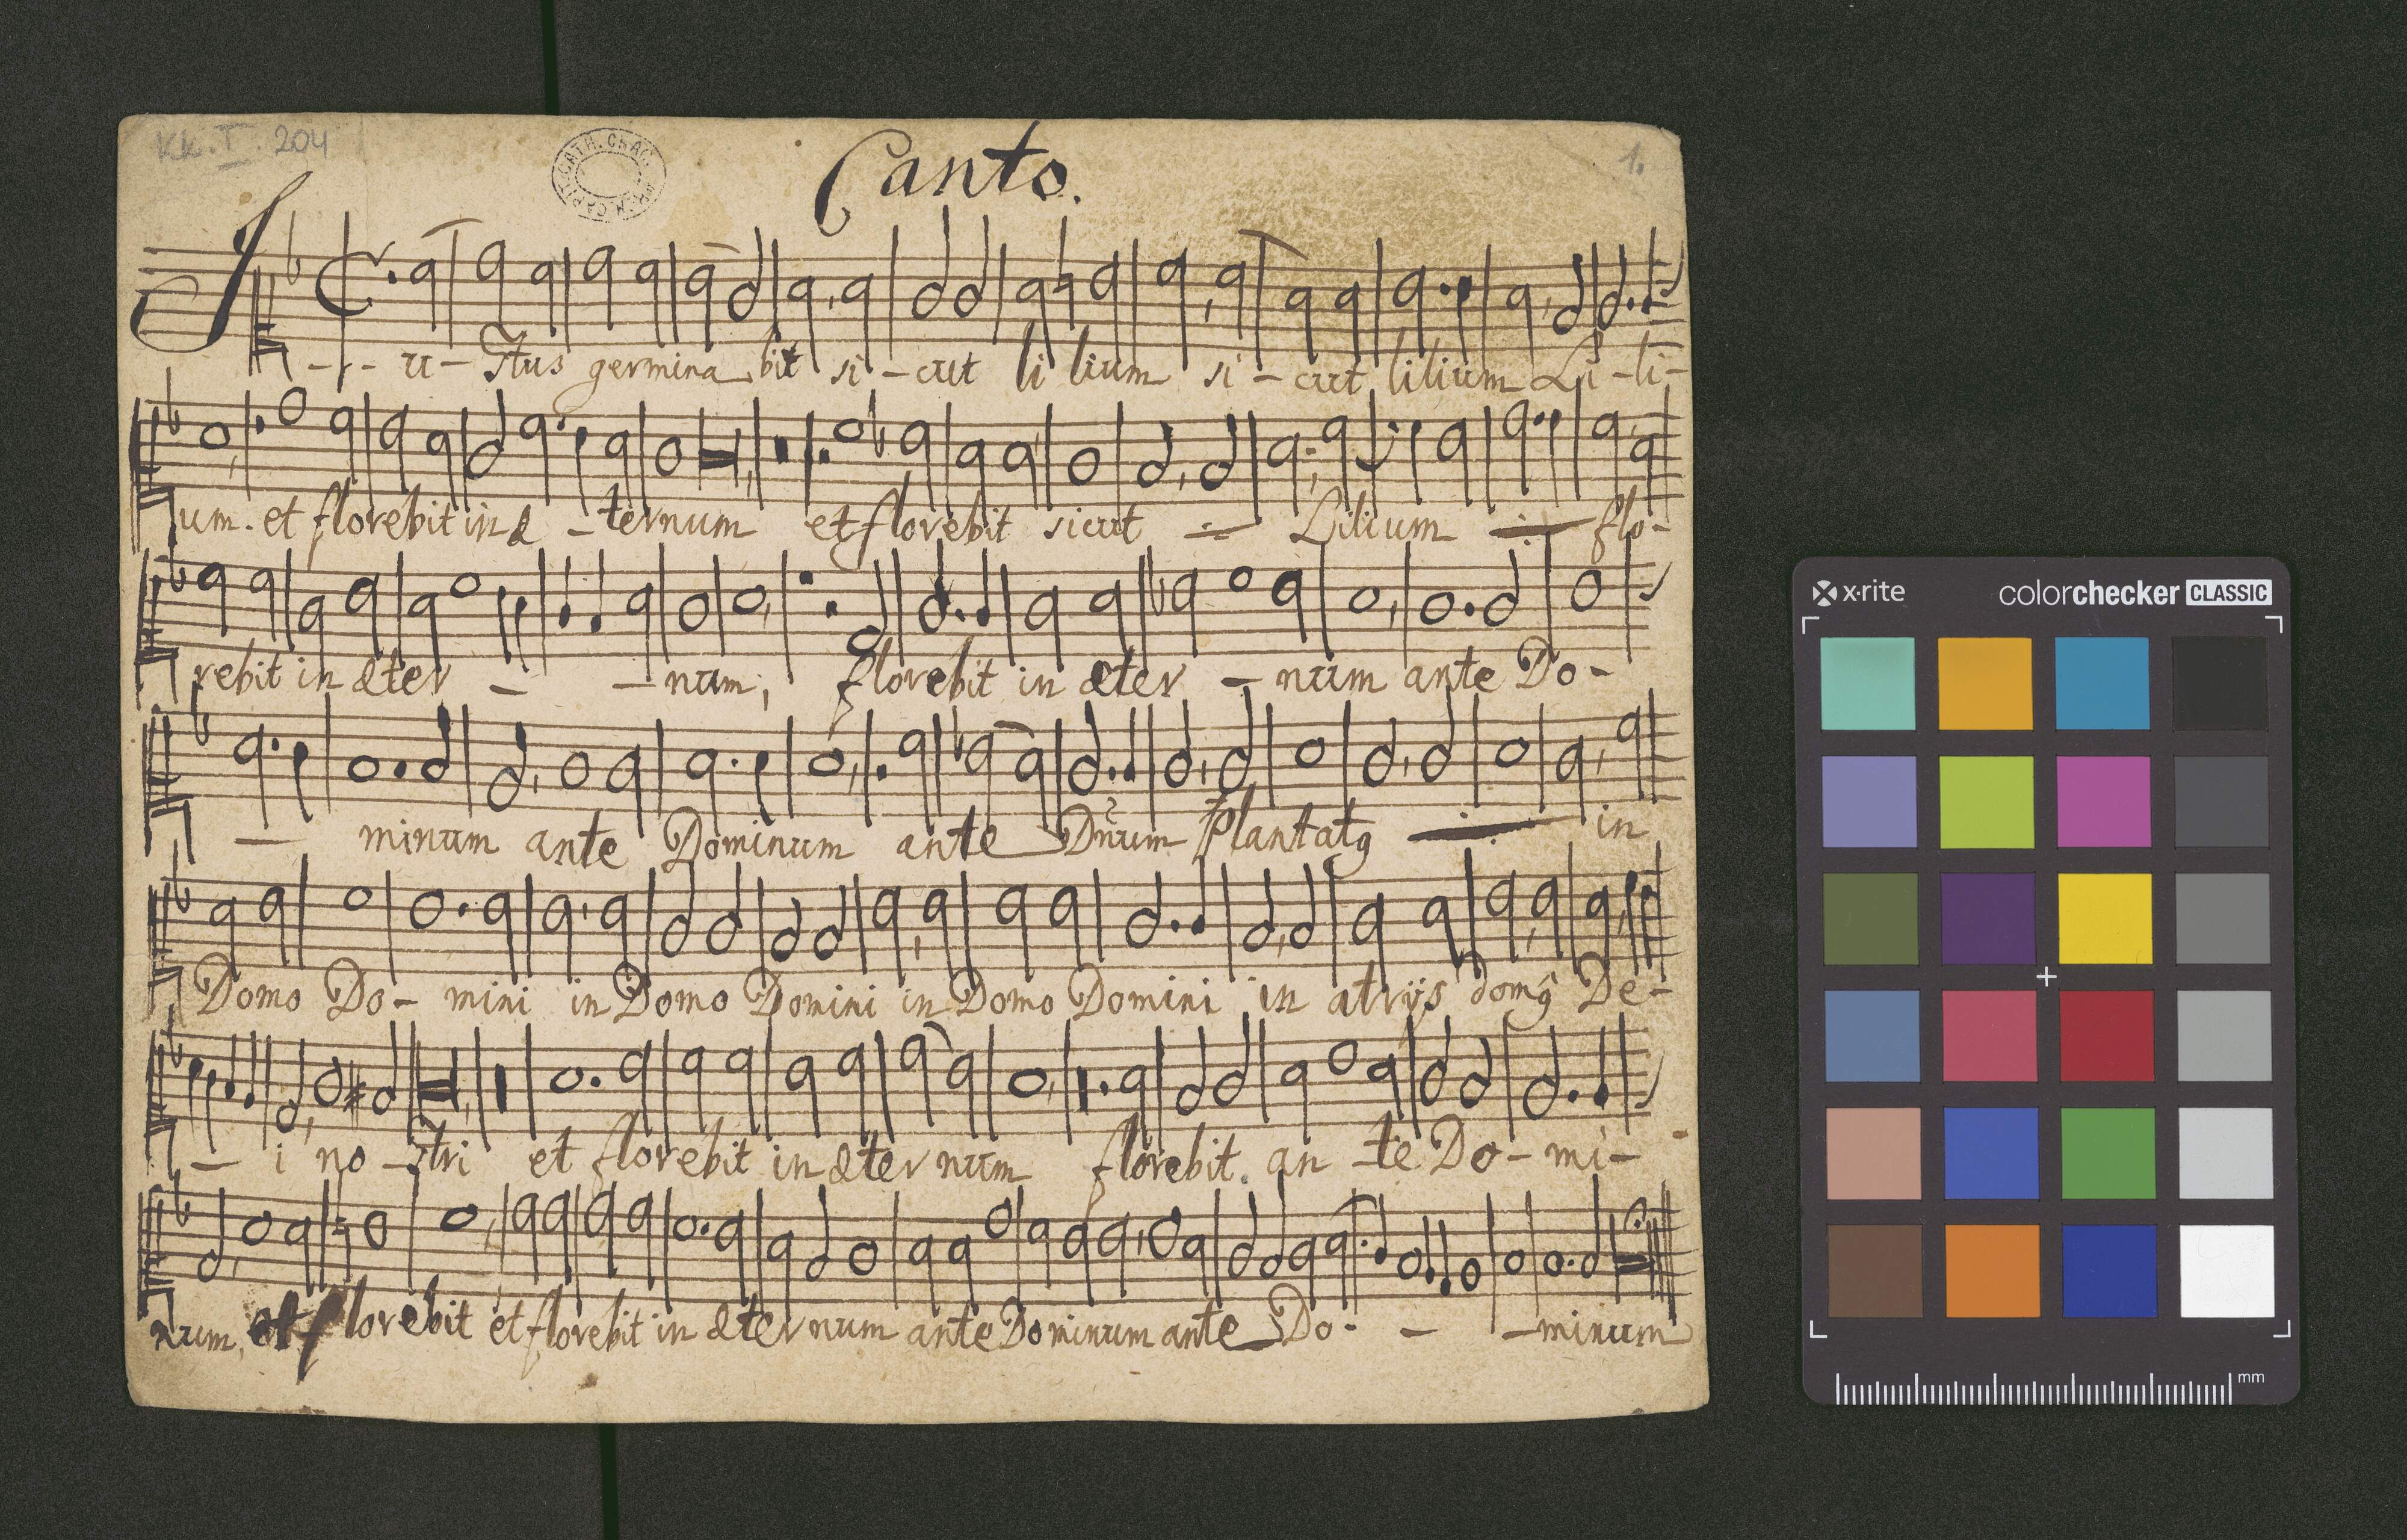 Kk. I. 204
Canto.
1.
I - - - u - stus germina bit si - cut li lium si - cut lilium Li - li -
um. et florebit in æ - ternum et florebit sicut Lilium flo -
rebit in æter - - num, florebit in æter - num ante Do -
- minum ante Dominum ante Dn̄um Plantatꝰ in
Domo Do - mini in Domo Domini in Domo Domini in atrijs domꝰ De -
- i no - stri et florebit in æternum florebit. an - te Do - mi -
num, et florebit et florebit in æternum ante Dominum ante Do - - - minum
x-rite
colorchecker CLASSIC
mm